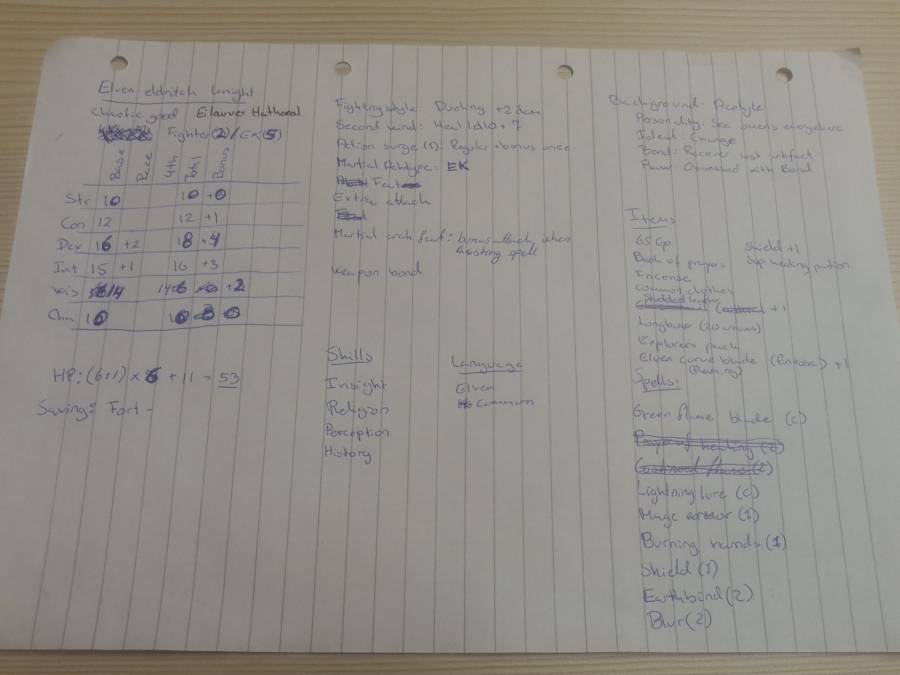 Elven eldritch knight
Chaotic good Eilauver Hathoral
Fighter(2)/EK(5)
Base Race 4th Total Bonus
Str 10 10 +0
Con 12 12 +1
Dex 16 +2 18 +4
Int 15 +1 16 +3
Wis 14 14 +2
Cha 10 10 0
HP: (6+1) × 6 + 11 = 53
Saving: Fort -
Fighting style: Dueling +2 dam
Second wind: Heal 1d10 + 7
Action surge (s): Regular + bonus once
Martial Achtype: EK
Feat
Extra attack
Martial arch feat: bonus attack when
casting spell
Weapon bond
Skills
Insight
Religion
Perception
History
Language
Elven
Common
Background: Acolyte
Personality: See omens everywhere
Ideal: Change
Bond: Recover lost artifact
Flaw: Obsessed with Bond
Items
65 Gp shield +1
Book of prayers healing potion
Incense
Common clothes
Studded leather +1
Longbow (20 arrows)
Explorers pack
Elven curve blade (finesse) +1
Spells:
Green flame blade (c)
Lightning lure (c)
Mage armour (1)
Burning hands (1)
Shield (1)
Earthbind (2)
Blur (2)